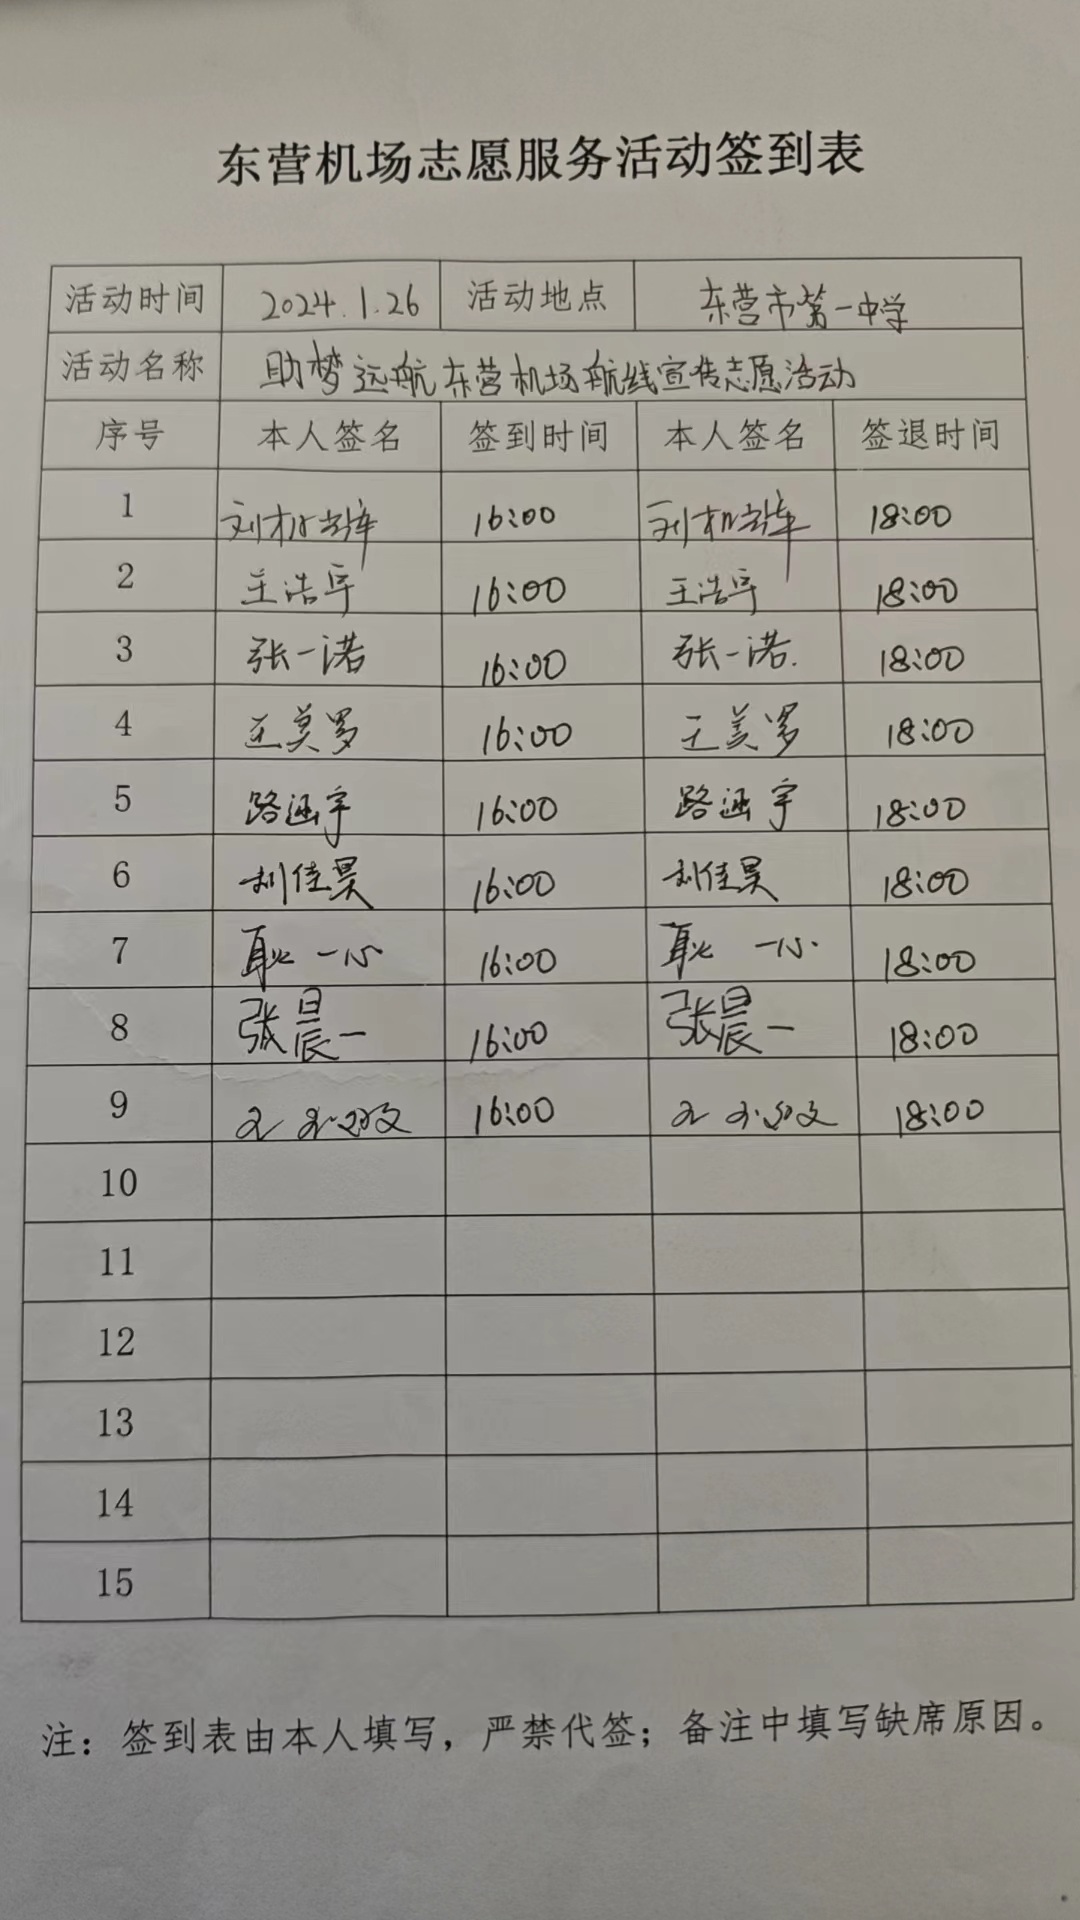 东营机场志愿服务活动签到表
活动时间 2024.1.26 活动地点 东营市第一中学
活动名称 助梦远航东营机场航线宣传志愿活动
序号 本人签名 签到时间 本人签名 签退时间
1 刘 16:00 刘 18:00
2 王浩宇 16:00 王浩宇 18:00
3 张一诺 16:00 张一诺. 18:00
4 王美罗 16:00 王美罗 18:00
5 路涵宇 16:00 路涵宇 18:00
6 刘佳昊 16:00 刘佳昊 18:00
7 耿一心 16:00 耿一心 18:00
8 张晨一 16:00 张晨一 18:00
9 16:00 18:00
10
11
12
13
14
15
注：签到表由本人填写，严禁代签；备注中填写缺席原因。